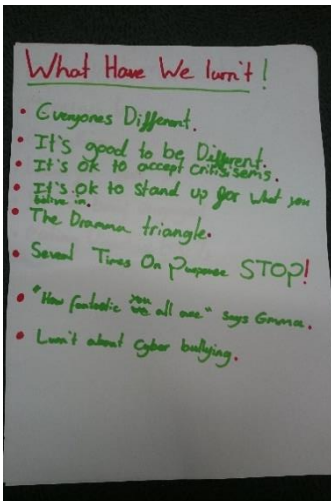 What Have We lurn't!
• Everyones Different.
• It's good to be Different.
• It's ok to accept critisisems.
• It's ok to stand up for what you
belive in.
• The Dramma triangle.
• Several Times On Purpose STOP!
• "How fantastic you all are" says Emma.
• Lurn't about Cyber bullying.